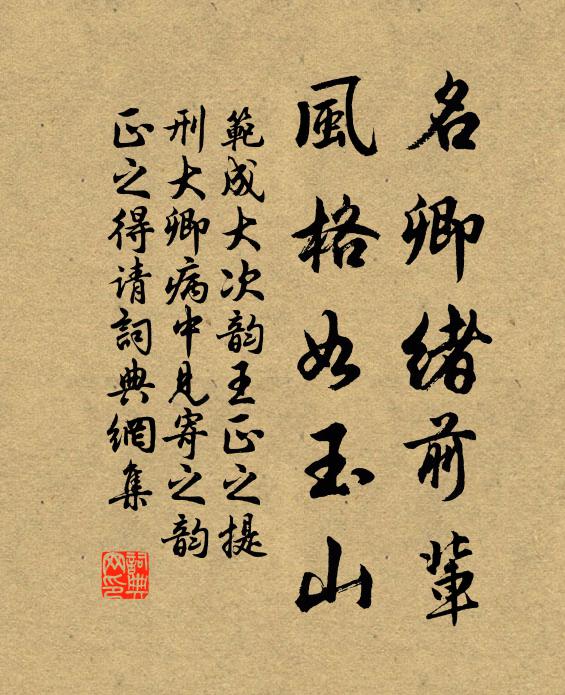 名卿绪前輩
風格如玉山
範成大次韵王正之提
刑大卿病中見寄之韵
正之得请詞典網集
詞典网印